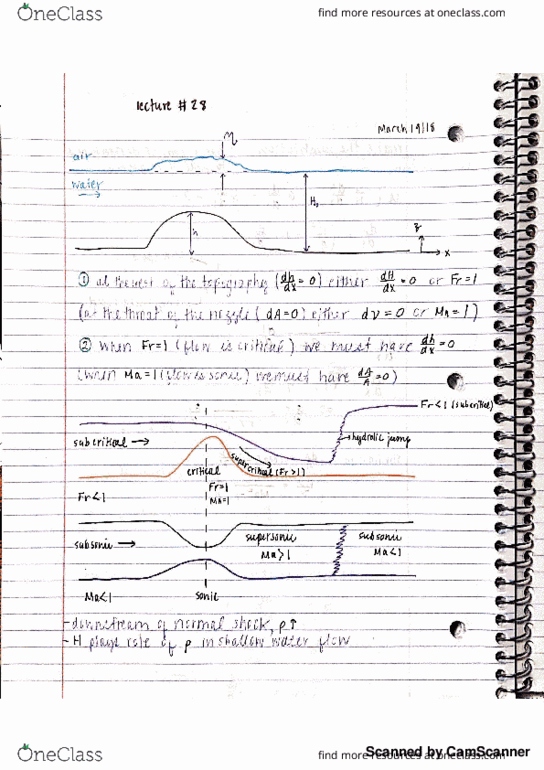 OneClass
find more resources at oneclass.com
lecture # 28
March 19/18
η
air
water
H₀
h
z
x
① at the crest of the topography (dh/dx = 0) either dH/dx = 0 or Fr = 1
(at the throat of the nozzle (dA = 0) either dv = 0 or Ma = 1)
② when Fr = 1 (flow is critical) we must have dh/dx = 0
(when Ma = 1 (flow is sonic) we must have dA/A = 0)
Fr < 1 (subcritical)
subcritical →
hydrolic jump
supercritical (Fr > 1)
critical
Fr = 1
Ma = 1
Fr < 1
subsonic →
supersonic
Ma > 1
subsonic
Ma < 1
Ma < 1
sonic
- downstream of normal shock, p ↑
- H plays role of p in shallow water flow
OneClass
find more resources at oneclass.com
Scanned by CamScanner